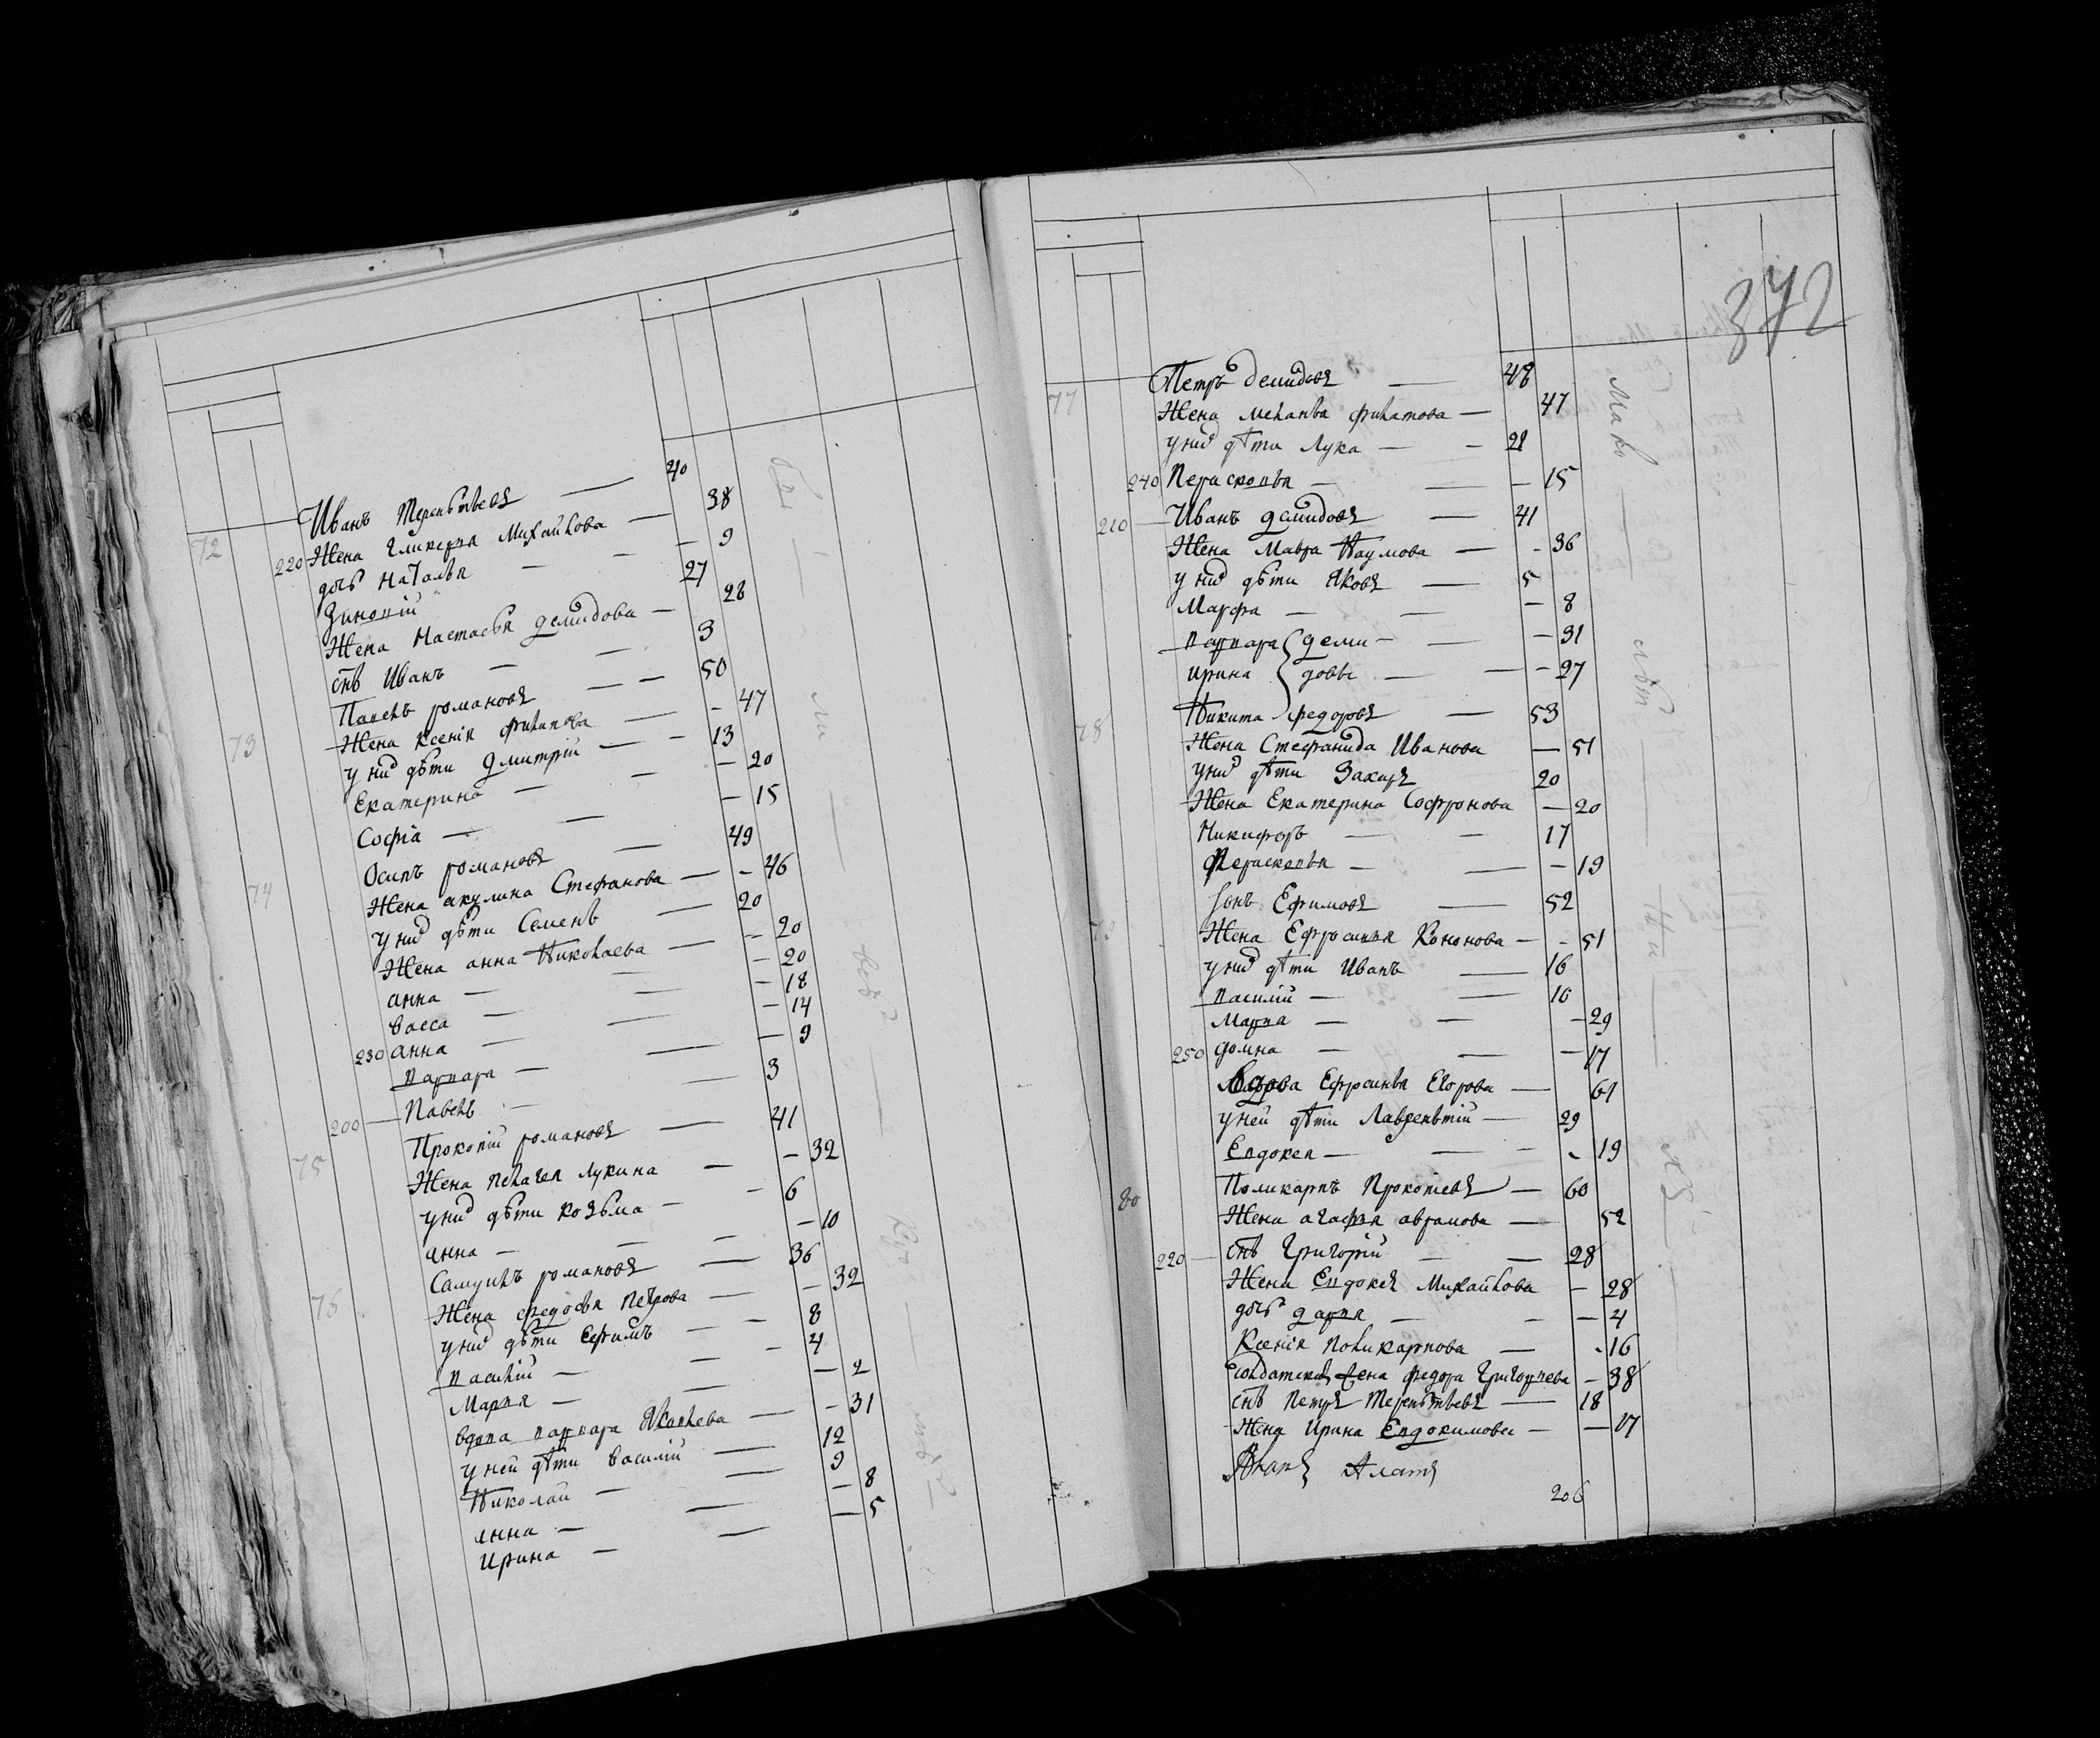 72 Иванъ Терентьевъ — 40
220 Жена Гликерия Михайлова — 38
дочь Наталья — — 9
Зиновий — 27
Жена Настасья Демидова — 28
снъ Иванъ — — 3
73 Павелъ Романовъ — — 50
Жена Ксения Филипова — - 47
у них дѣти Дмитрий — - 13
Екатерина — — — 20
София — — — 15
74 Осипъ Романовъ — 49
Жена акулина Стефанова — - 46
у них дѣти Семенъ — 20
Жена анна Николаева — - 20
анна — — — 20
васса — — — 18
230 анна — — — 14
варвара — — — 9
200 — Павелъ — — 3
75 Прокопий Романовъ — 41
Жена пелагея Лукина — — 32
у них дѣти Козьма — - 6
анна — — — 10
76 Самуилъ Романовъ — 36
Жена федосья петрова — — 32
у них дѣти Ефимъ — - 8
василий — — - 4
Мария — — — 2
вдова варвара Яковлева — - 31
у ней дѣти василий — 12
Николай — — 9
анна — — — 8
Ирина — — — 5
372
77 Петръ Демидовъ — 48
Жена меланья филатова — 47
у них дѣти Лука — - 21
240 Парасковья — — — 15
210 — Иванъ демидовъ — 41
Жена Мавра Наумова — - 36
у них дѣти Яковъ — 5
Марфа — — — 8
варвара { деми- — — 31
ирина { довы — — - 27
78 Никита федоровъ — 53
Жена Стефанида Иванова — 51
у них дѣти Захаръ 20
Жена Екатерина Софронова — 20
Никифоръ — — 17
Парасковья — — — 19
Ефимовъ — 52
Жена Ефросиния Кононова — - 51
у них дѣти Иванъ — 16
василий — — 10
Мария — — — 29
250 домна — — — 17
вдова Ефросинья Егорова — 61
у ней дѣти Лаврентий — 29
Евдокея — — - - 19
80 Поликарпъ Прокопиевъ — 60
Жена агафия аврамова — 52
220 — снъ Григорий — — 28
Жена Евдокея Михайлова — 28
дочь дария — - — 4
Ксения поликарпова — - 16
Солдатская жена федора Григориева — 38
снъ петръ Терентьевъ — 18
Жена Ирина Евдокимова — — 17
206